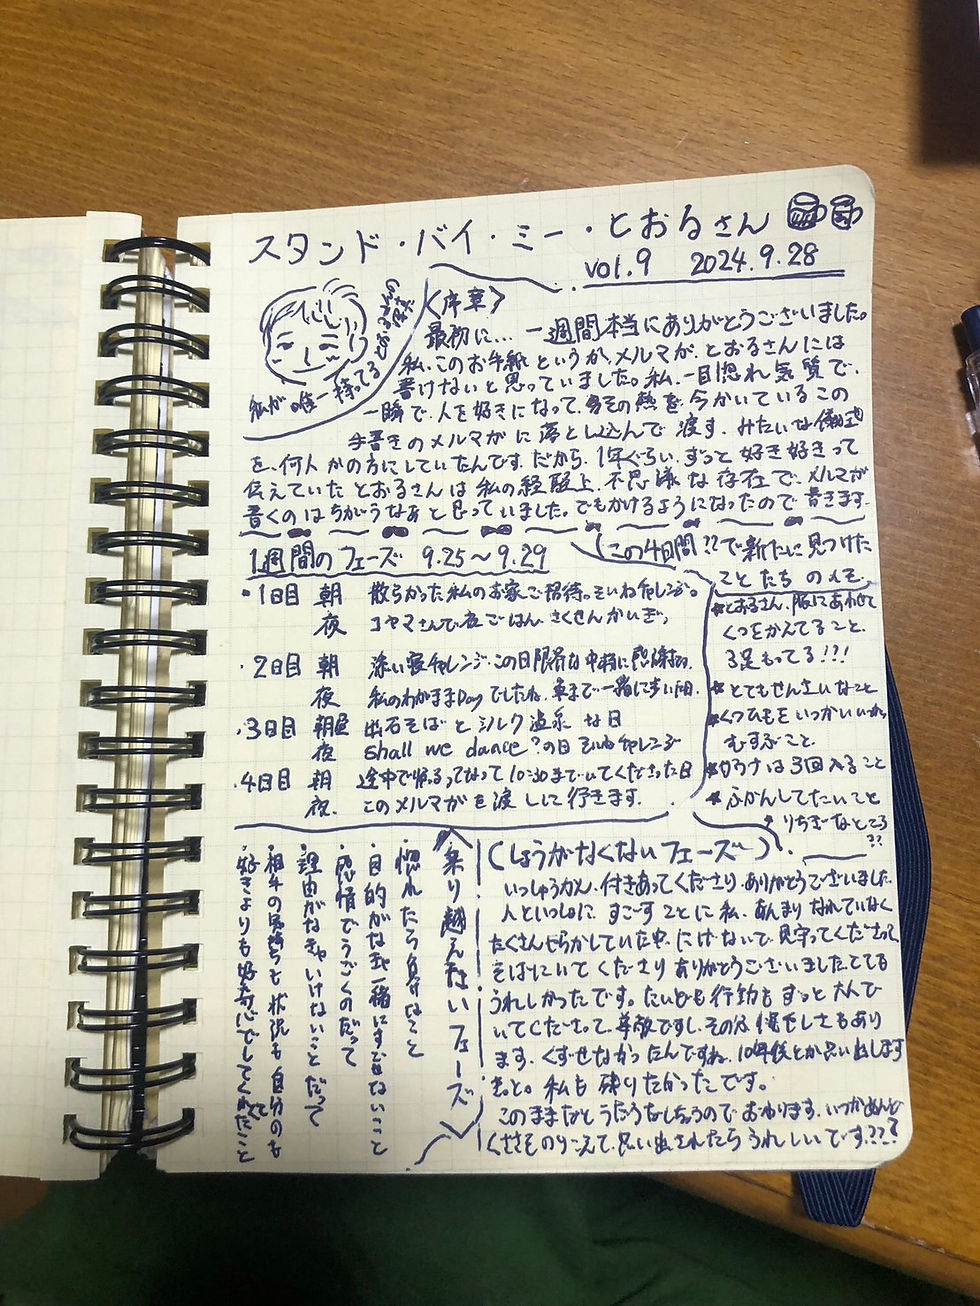 スタンド・バイ・ミー・とおるさん
vol.9 2024.9.28
私が唯一持ってる
〈序章〉
最初に… 一週間本当にありがとうございました。
私、このお手紙というか、メルマガ、とおるさんには
書けないと思っていました。私、一目惚れ気質で、
一瞬で、人を好きになって、その熱を、今かいているこの
手書きのメルマガに落とし込んで渡す、みたいな儀式
を、何人かの方にしていたんです。だから、1年ぐらい、ずっと好き好きって
伝えていたとおるさんは私の経験上、不思議な存在で、メルマガ
書くのはちがうなぁと思っていました。でもかけるようになったので書きます。
1週間のフェーズ 9.25〜9.29
・1日目 朝 散らかった私のお家ご招待。そいねチャレンジ。
夜 コヤマさんで夜ごはん、さくせんかいぎ。
・2日目 朝 添い寝チャレンジ、この日限昔な中
夜 私のわがままDayでしたね、車まで一緒に
・3日目 朝昼 出石そばとシルク温泉な日
夜 shall we dance?の日 そいねチャレンジ
・4日目 朝 途中で帰るってなって10:30までいてくださった日
夜 このメルマガを渡しに行きます。
(この4日間??で新たに見つけた
ことたちのメモ
★とおるさん、服にあわせて
くつをかえてること、
3足もってる!!!
★とてもせんさいなこと
★くつひもをいっかいいっかい
むすぶこと。
★サウナは3回入ること
★ふかんしてたいこと
★りちぎなところ
??
乗り越えたいフェーズ
・惚れたら負けなこと
・目的がな一緒にすごせないこと
・感情でうごくのだって
・理由がなきゃいけないことだって
・相手の気持ちと状況も自分のも
・好きよりも好奇心でしてくれたこと
(しょうがなくないフェーズ)
いっしゅうかん、付きあってくださり、ありがとうございました。
人といっしょに、すごすことに私、あんまりなれていなく
たくさんやらかしていた中、にげないで、見守ってくださって、
そばにいてくださりありがとうございましたとても
うれしかったです。たいども行動もずっと大人で
いてくださって、尊敬ですし、その分悔しさもあり
ます、くずせなかったんですね。10年後とか思い出します
きっと。私も踊りたかったです。
このままだとうだうだしちゃうのでおわります、いつかめんど
くささそのりこえて、思い出されたらうれしいです???